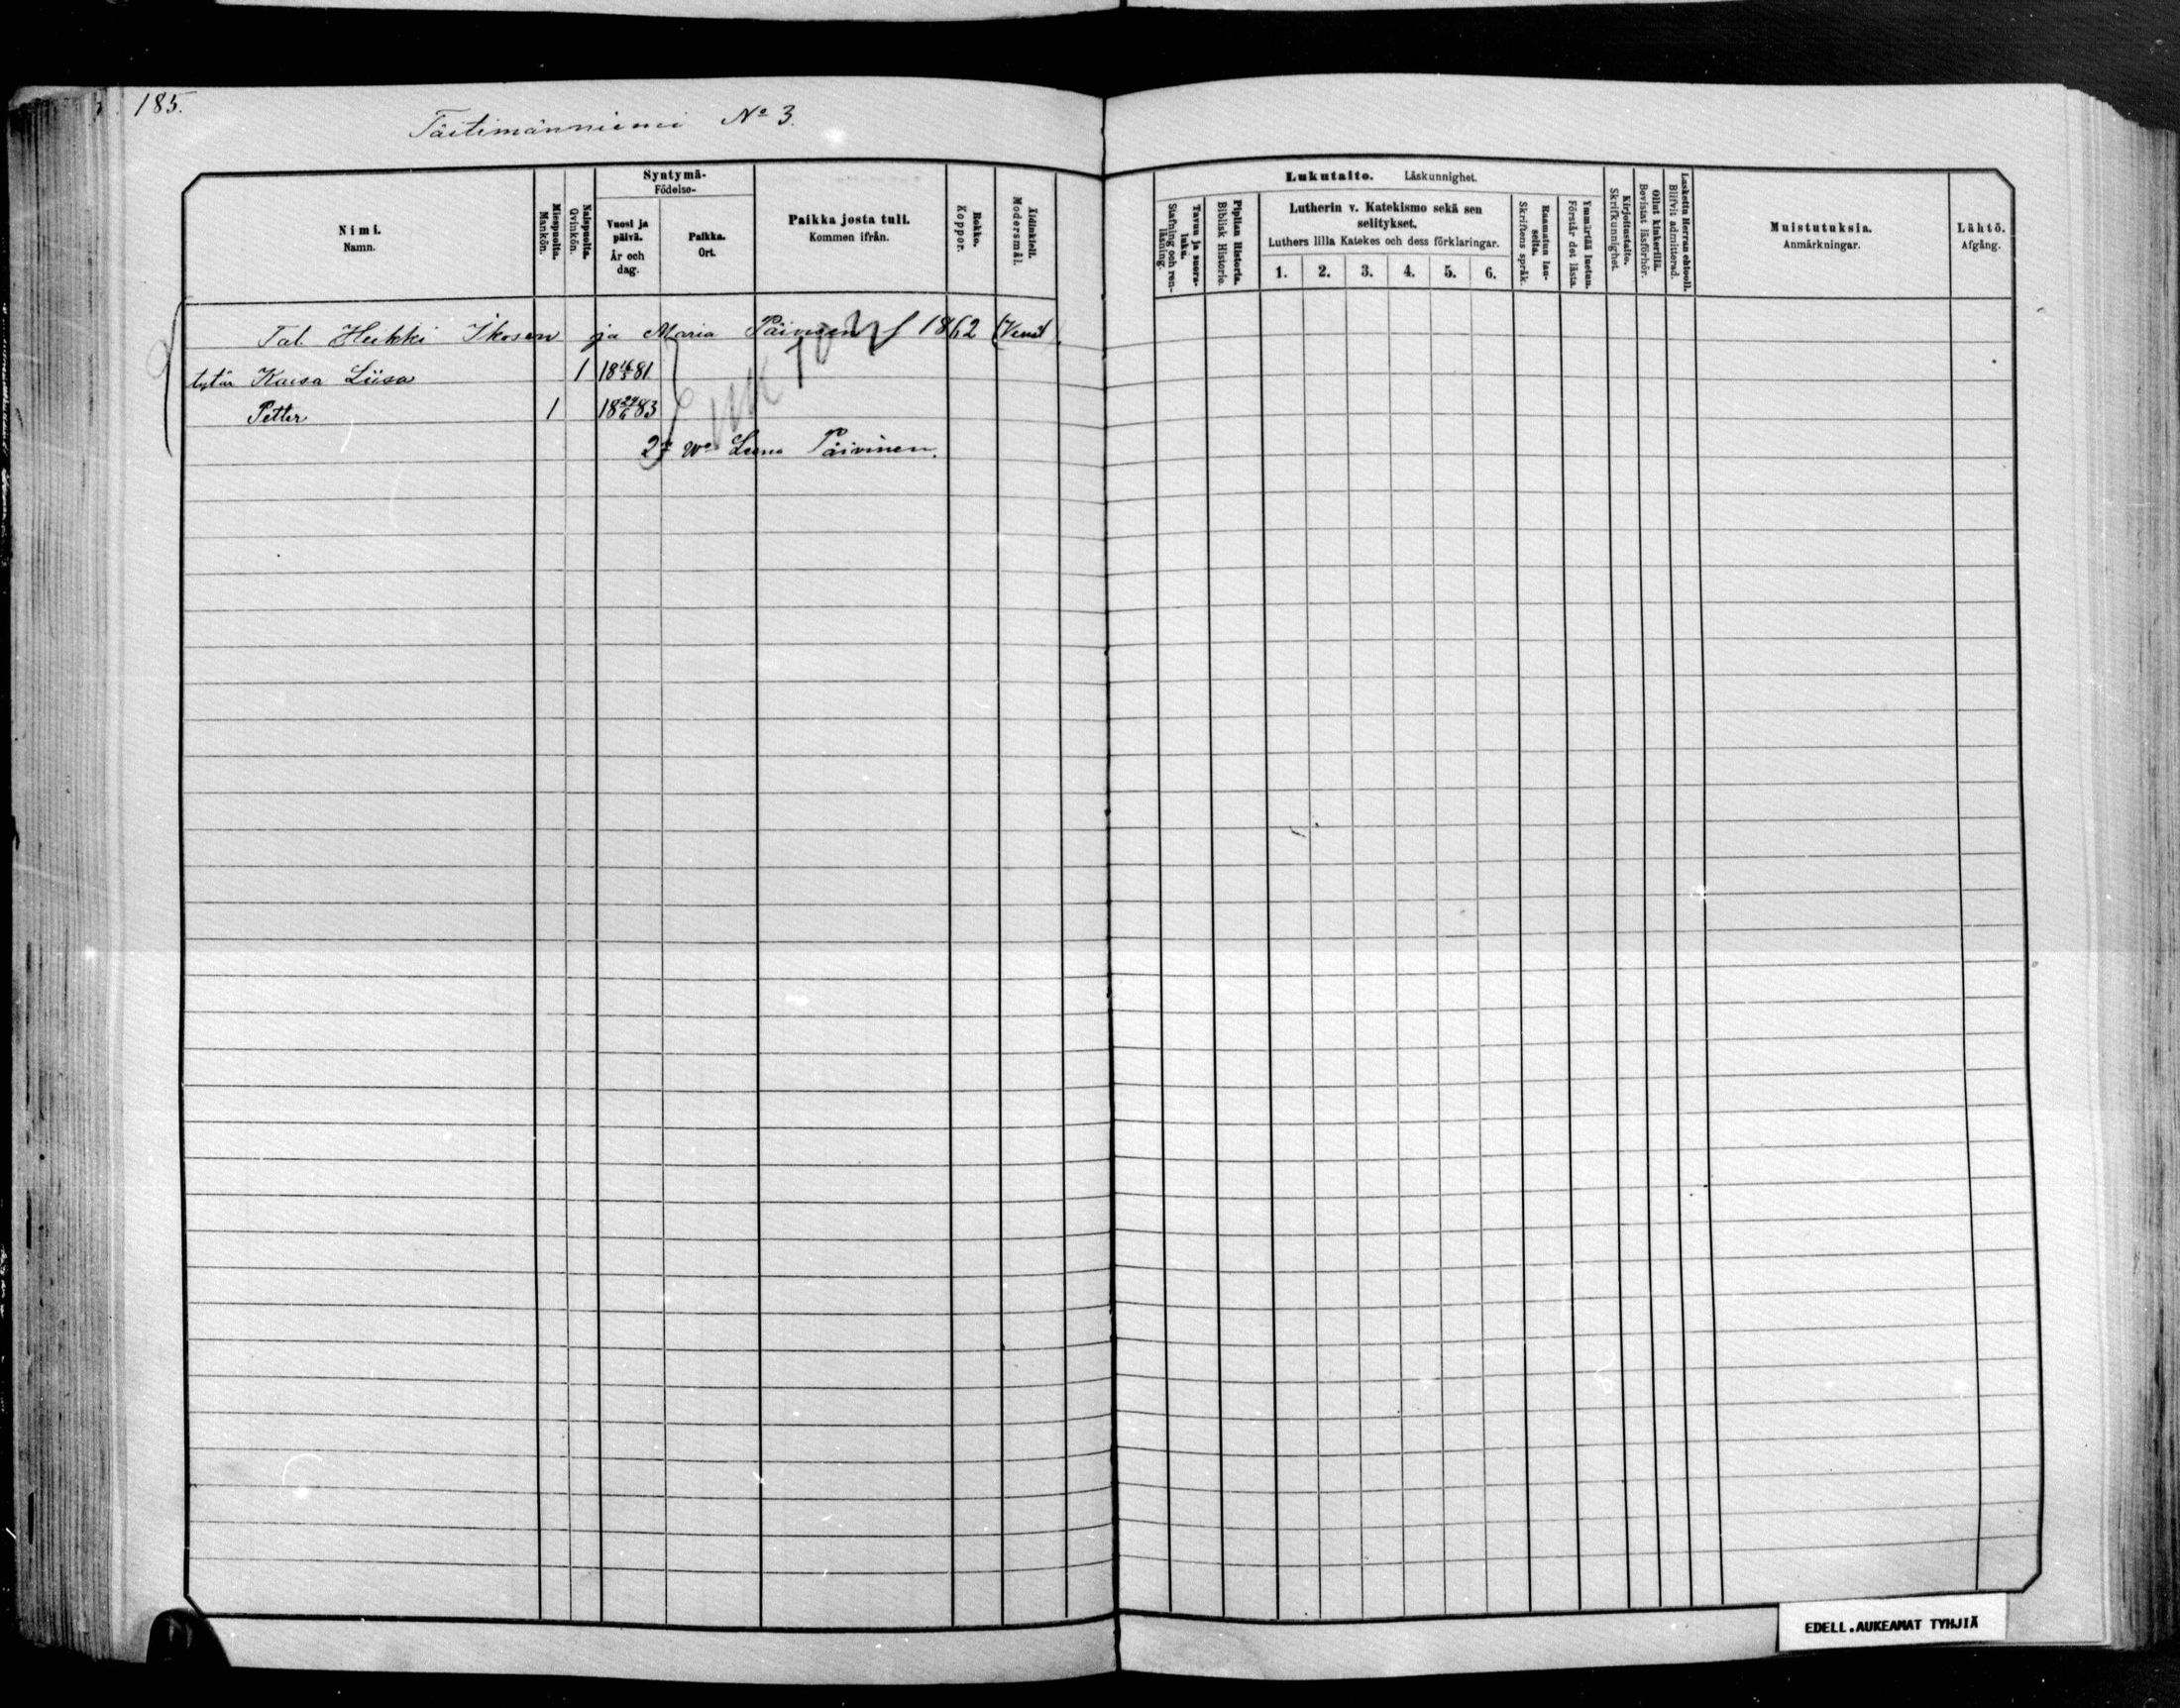 185.
Täitimänniemi No 3.
Nimi.
Namn.
Miespuolia.
Mankön.
Naispuolia.
Qvinkön.
Syntymä-
Födelse-
Vuosi ja
päivä.
År och
dag.
Paikka.
Ort.
Paikka josta tuli.
Kommen ifrån.
Rokko.
Koppor.
Äidinkieli.
Modersmål.
Lukutaito. Läskunnighet.
Tavuu ja suora-
luku.
Stafning och ren-
läsning.
Piplian Historia.
Biblisk Historie.
Lutherin v. Katekismo sekä sen
selitykset.
Luthers lilla Katekes och dess förklaringar.
1. 2. 3. 4. 5. 6.
Raamatun lau-
seita.
Skriftens språk.
Ymmärtää luetun.
Förstår det lästa.
Kirjoitustaito.
Skrifkunnighet.
Ollut kinkerillä.
Bevistat läsförhör.
Laskettu Herran ehtooll.
Blifvit admitterad.
Muistutuksia.
Anmärkningar.
Lähtö.
Afgång.
Tal. Heikki Ikosen ja Maria Päivisen 1862
tytär Kaisa Liisa 1 18 16/5 81.
Petter 1 18 24/6 83
Leena Päivinen.
EDELL.AUKEAMAT TYHJIÄ